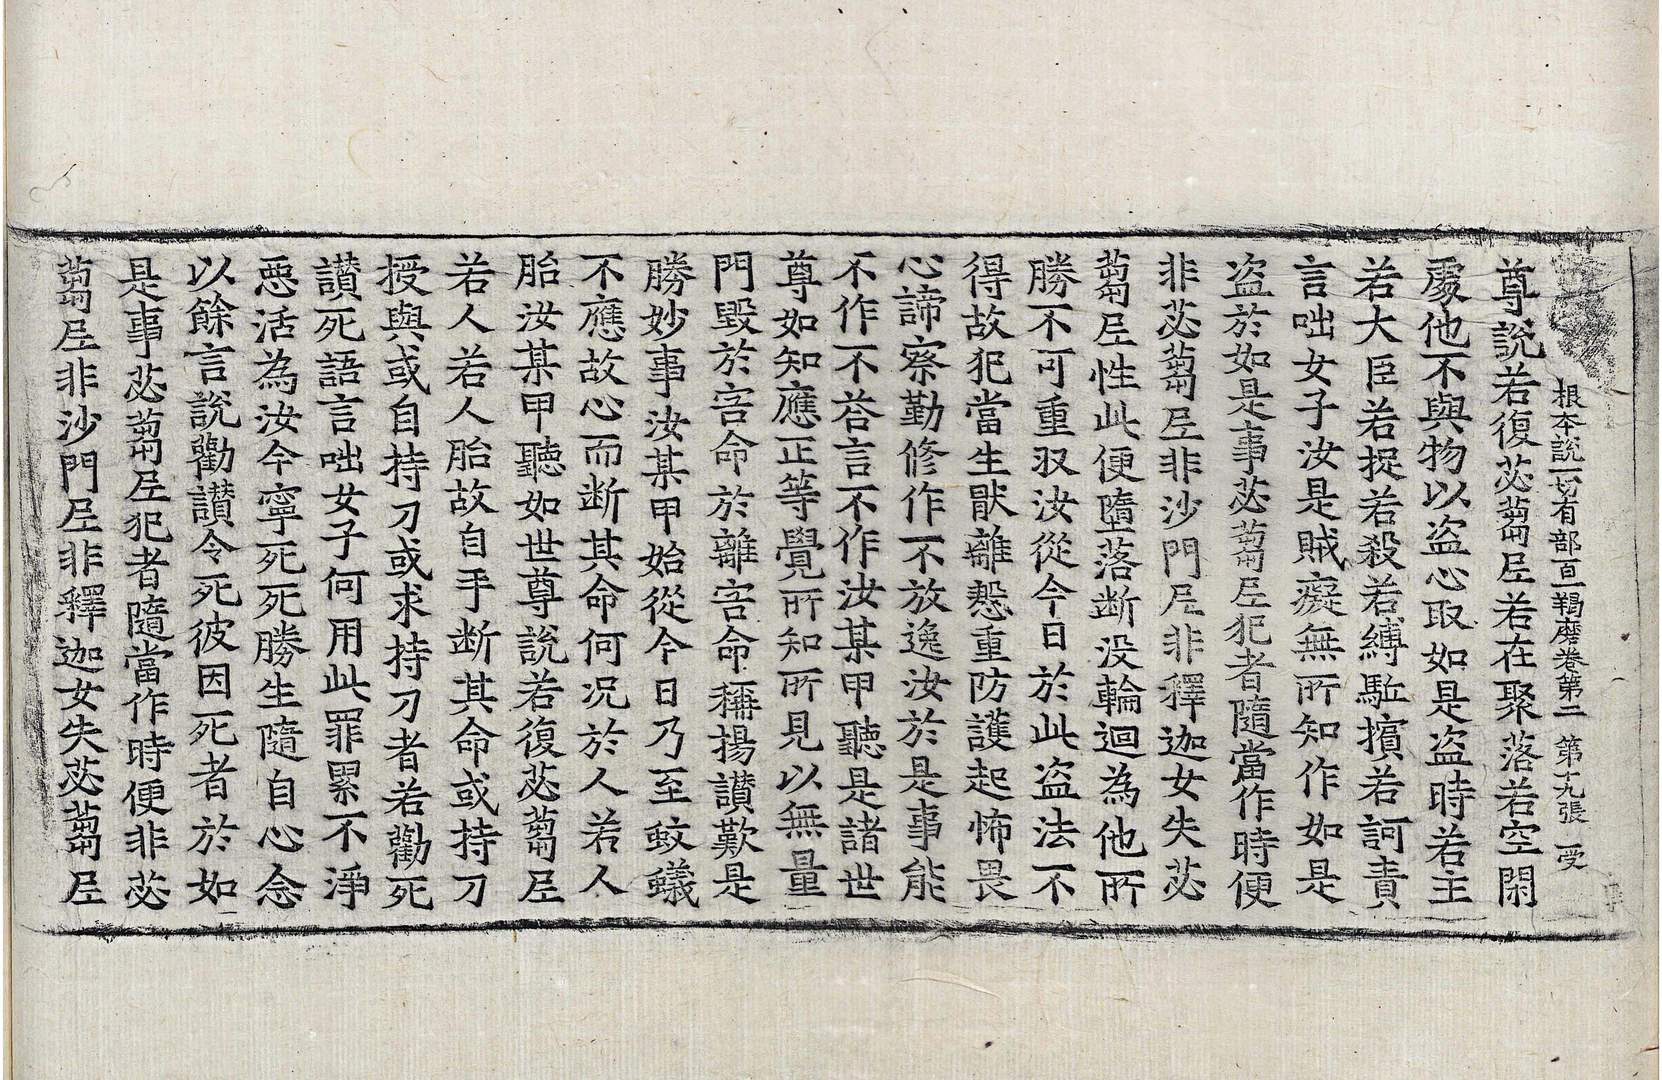 根本說一切有部百一羯磨卷第二 第十九張 受
尊說若復苾蒭尼若在聚落若空閑
處他不與物以盜心取如是盜時若主
若大臣若捉若殺若縛駈擯若訶責
言咄女子汝是賊癡無所知作如是
盜於如是事苾蒭尼犯者隨當作時便
非苾蒭尼非沙門尼非釋迦女失苾
蒭尼性此便墮落斷没輪迴為他所
勝不可重収汝從今日於此盜法不
得故犯當生猒離慇重防護起怖畏
心諦察勤修作不放逸汝於是事能
不作不荅言不作汝某甲聽是諸世
尊如知應正等覺所知所見以無量
門毀於害命於離害命稱揚讃歎是
勝妙事汝某甲始從今日乃至蚊蟻
不應故心而断其命何况於人若人
胎汝某甲聽如世尊說若復苾蒭尼
若人若人胎故自手断其命或持刀
授與或自持刀或求持刀者若勸死
讃死語言咄女子何用此罪累不淨
惡活為汝今寧死死勝生隨自心念
以餘言說勸讃令死彼因死者於如
是事苾蒭尼犯者隨當作時便非苾
蒭尼非沙門尼非釋迦女失苾蒭尼